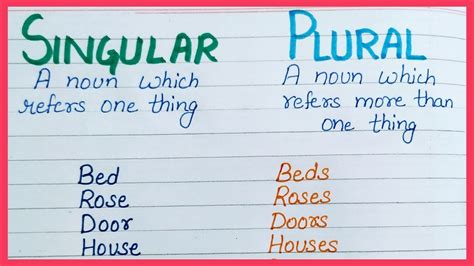 SINGULAR
A noun which
refers one thing
Bed
Rose
Door
House
PLURAL
A noun which
refers more than
one thing
Beds
Roses
Doors
Houses